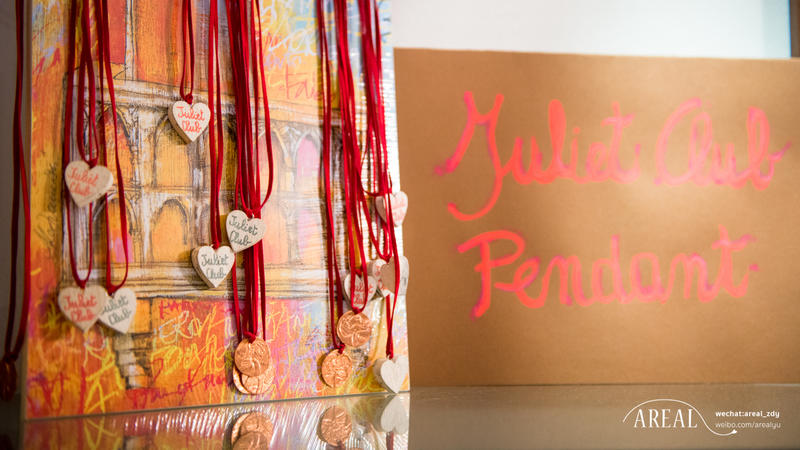 Juliet Club
Pendant
Juliet
Club
Juliet
Club
Juliet
Club
Juliet
Club
Juliet
Club
Juliet
Club
AREAL
wechat:areal_zdy
weibo.com/arealyu